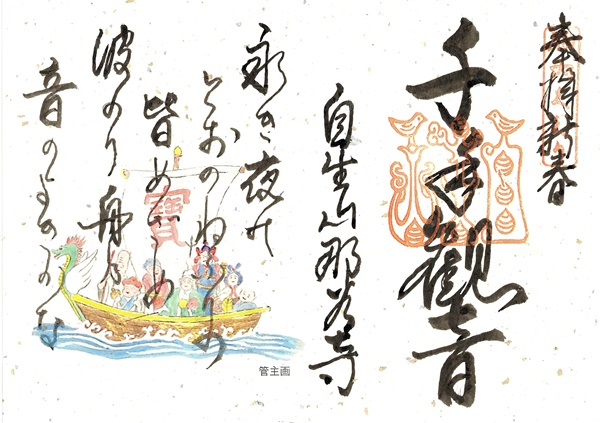 奉拝新春
千手観音
自生山那谷寺
永き夜の
とおのねふりの
皆めざめ
波のり舟の
音のよきかな
寳
管主画